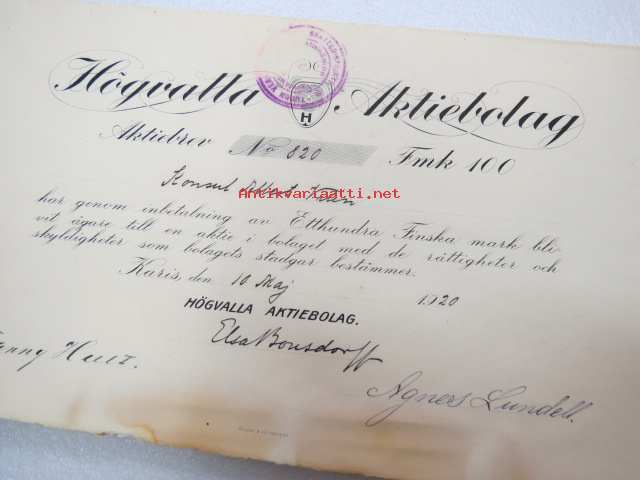 Högvalla Aktiebolag
H
Aktiebrev No 820 Fmk 100
Konsul
Antikvariaatti.net
har genom inbetalning av Etthundra Finska mark bli-
vit ägare till en aktie i bolaget med de rättigheter och
skyldigheter som bolagets stadgar bestämmer.
Karis, den 10 Maj 1920
HÖGVALLA AKTIEBOLAG.
Elsa Bonsdorff
Agnes Lundell.